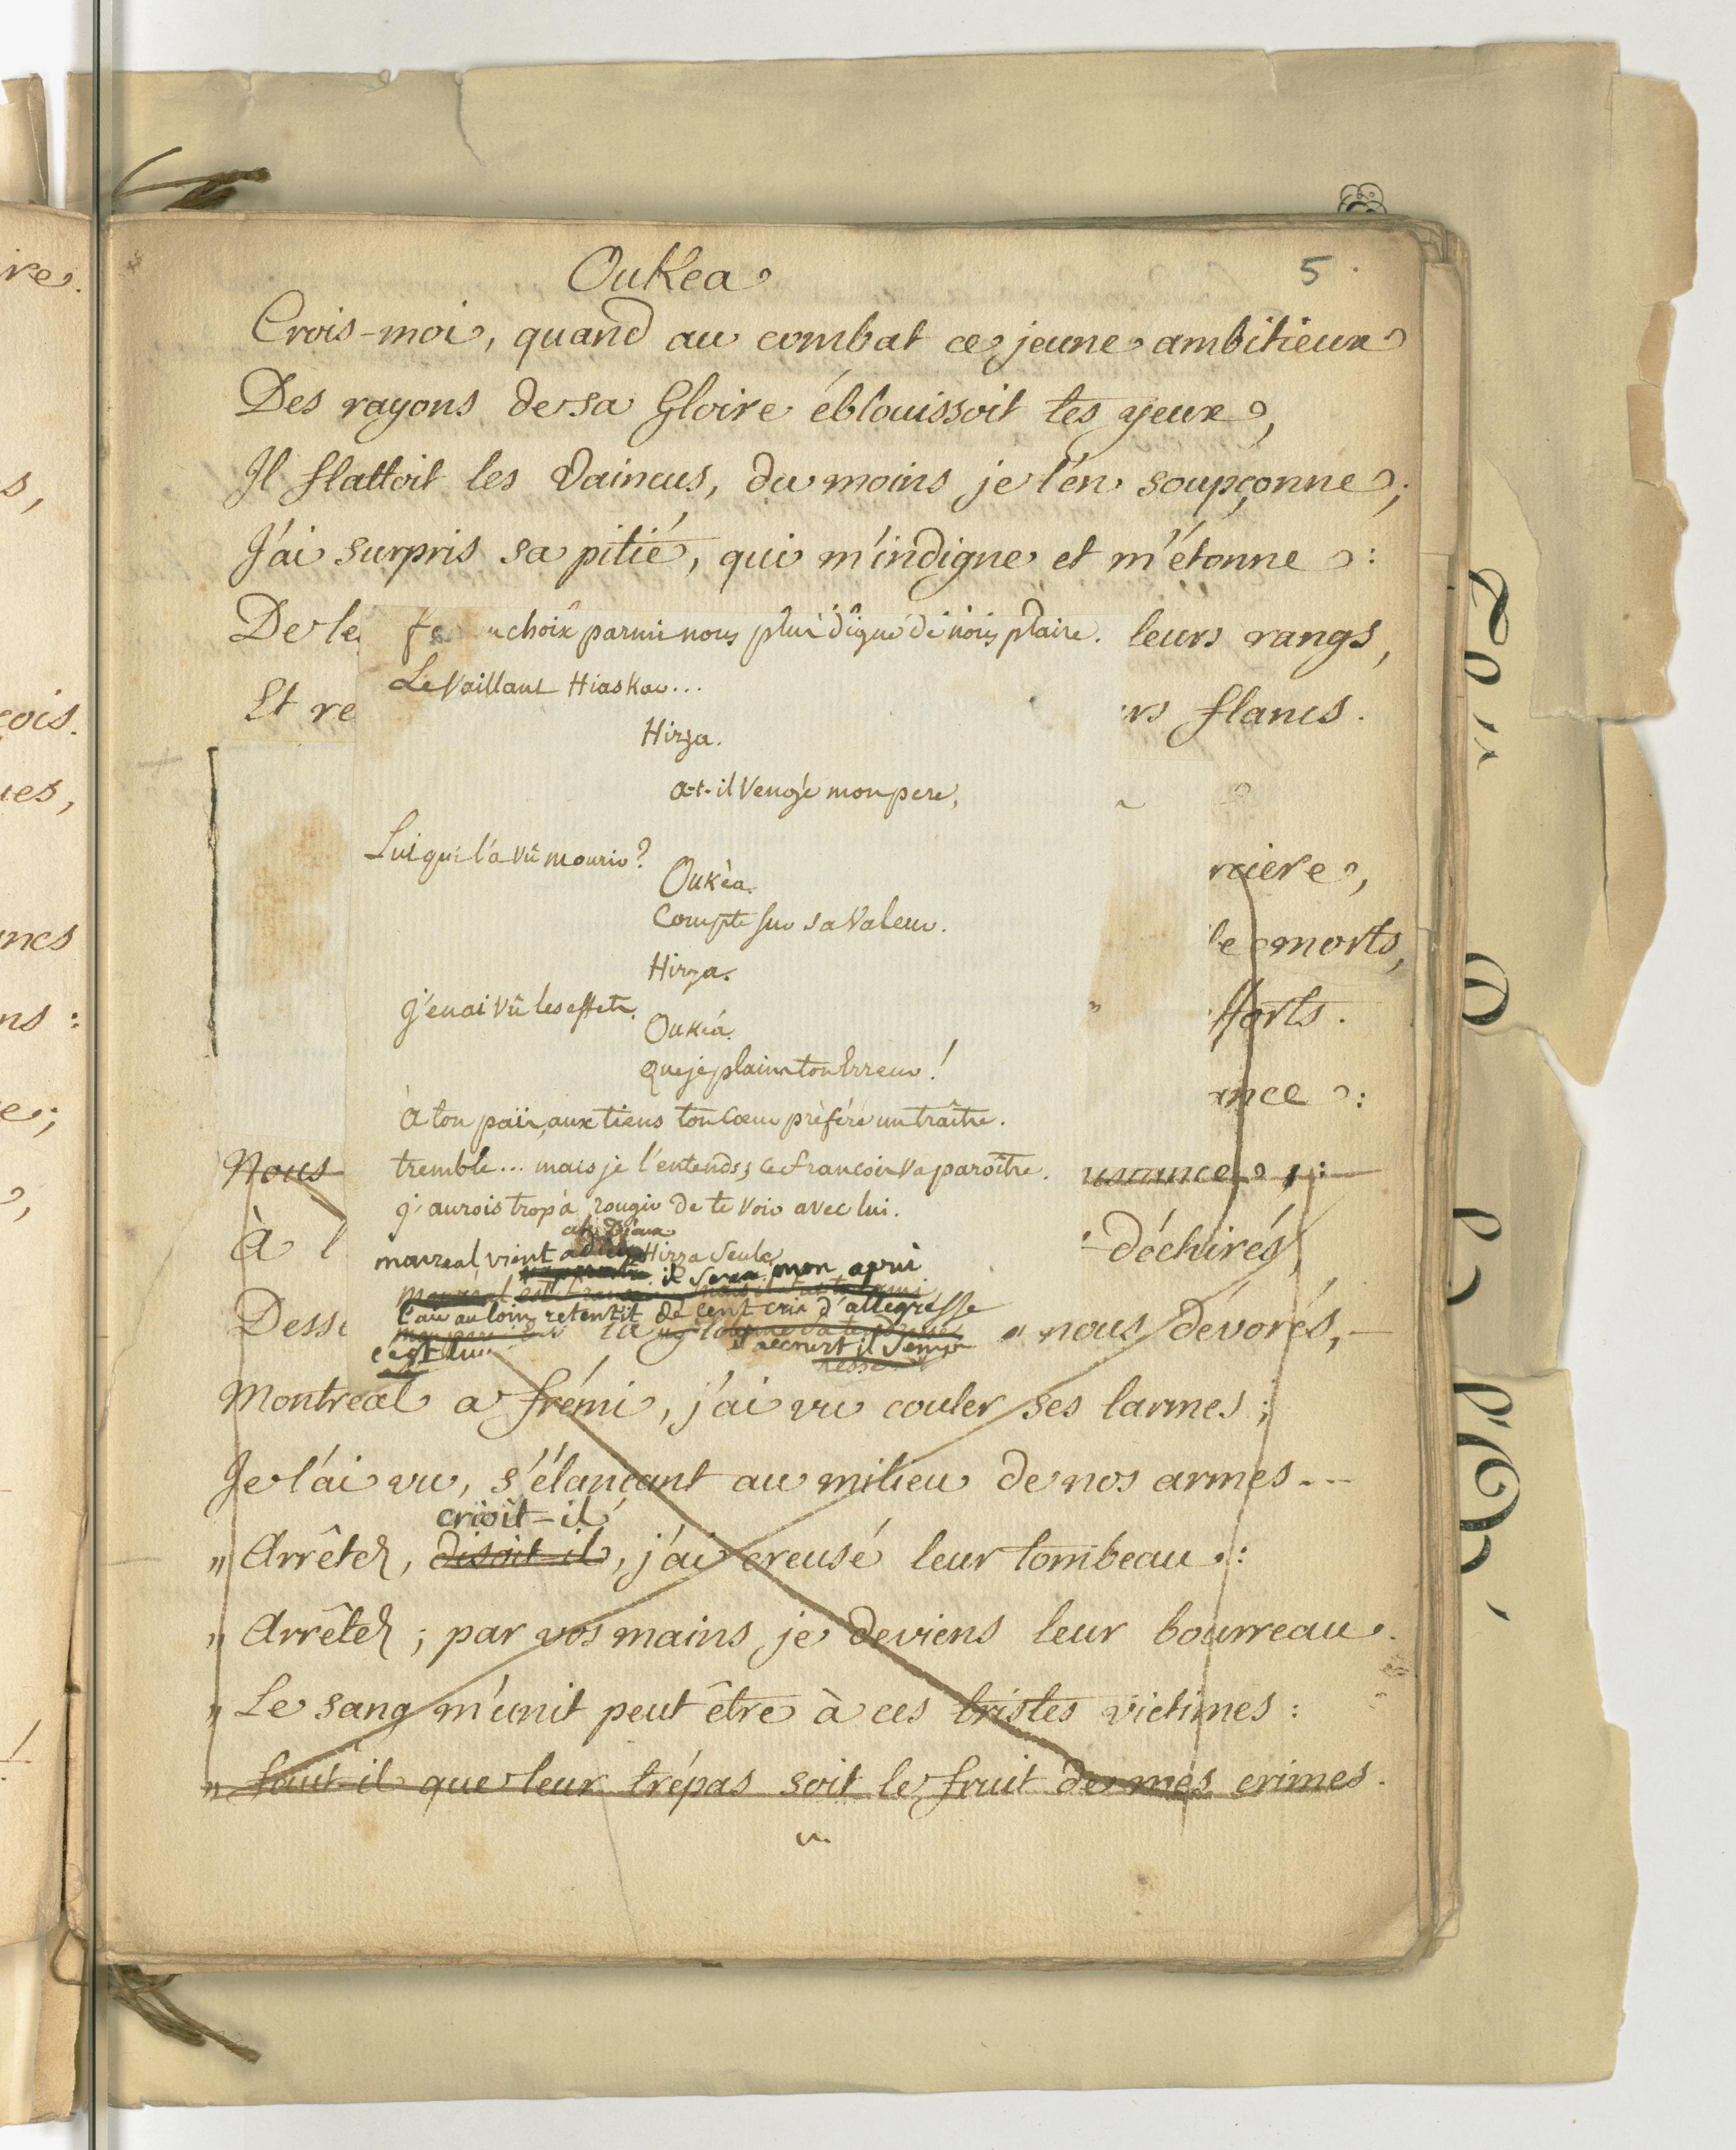 OuKea
5
Crois-moi, quand au combat ce jeune ambitieux
Des rayons de sa Gloire éblouissoit tes yeux,
Il flattoit les Vaincus, du moins je l'en soupçonne;
J'ai surpris sa pitié, qui m'indigne et m'étonne:
De le leurs rangs,
choix parmi nous plus digne de nous plaire.
Le Vaillant Hiaskar...
Et re rs flancs.
Hirza.
a-t-il Vengé mon pere,
Lui qui l'a vû mourir?
rriere,
Oukéa.
Compte sur sa Valeur.
le morts,
Hirza.
J'en ai vû les effets.
fforts.
Oukéa.
que je plains ton Erreur!
ance:
à ton païs, aux tiens ton coeur préfére un traître.
Nous
tremble... mais je l'entends; ce françois va paroître.
j'aurois trop à rougir de te voir avec lui.
à l déchirés,
ah Dieux
monreal vient Hirza Seule
il sera mon apui
l'air au loin retentit de cent cris d'allegresse
Desse nous dévorés,
c'est lui il accourt il s'empresse
Montreal a frémi, j'ai vu couler ses larmes;
Je l'ai vu, s'élançant au milieu de nos armes...
crioit-il
„ Arrêtez, disoit-il, j'ai creusé leur tombeau:
„ Arrêtez; par vos mains je deviens leur bourreau.
„ Le sang m'unit peut être à ces tristes victimes:
„ faut-il que leur trépas soit le fruit de mes crimes.